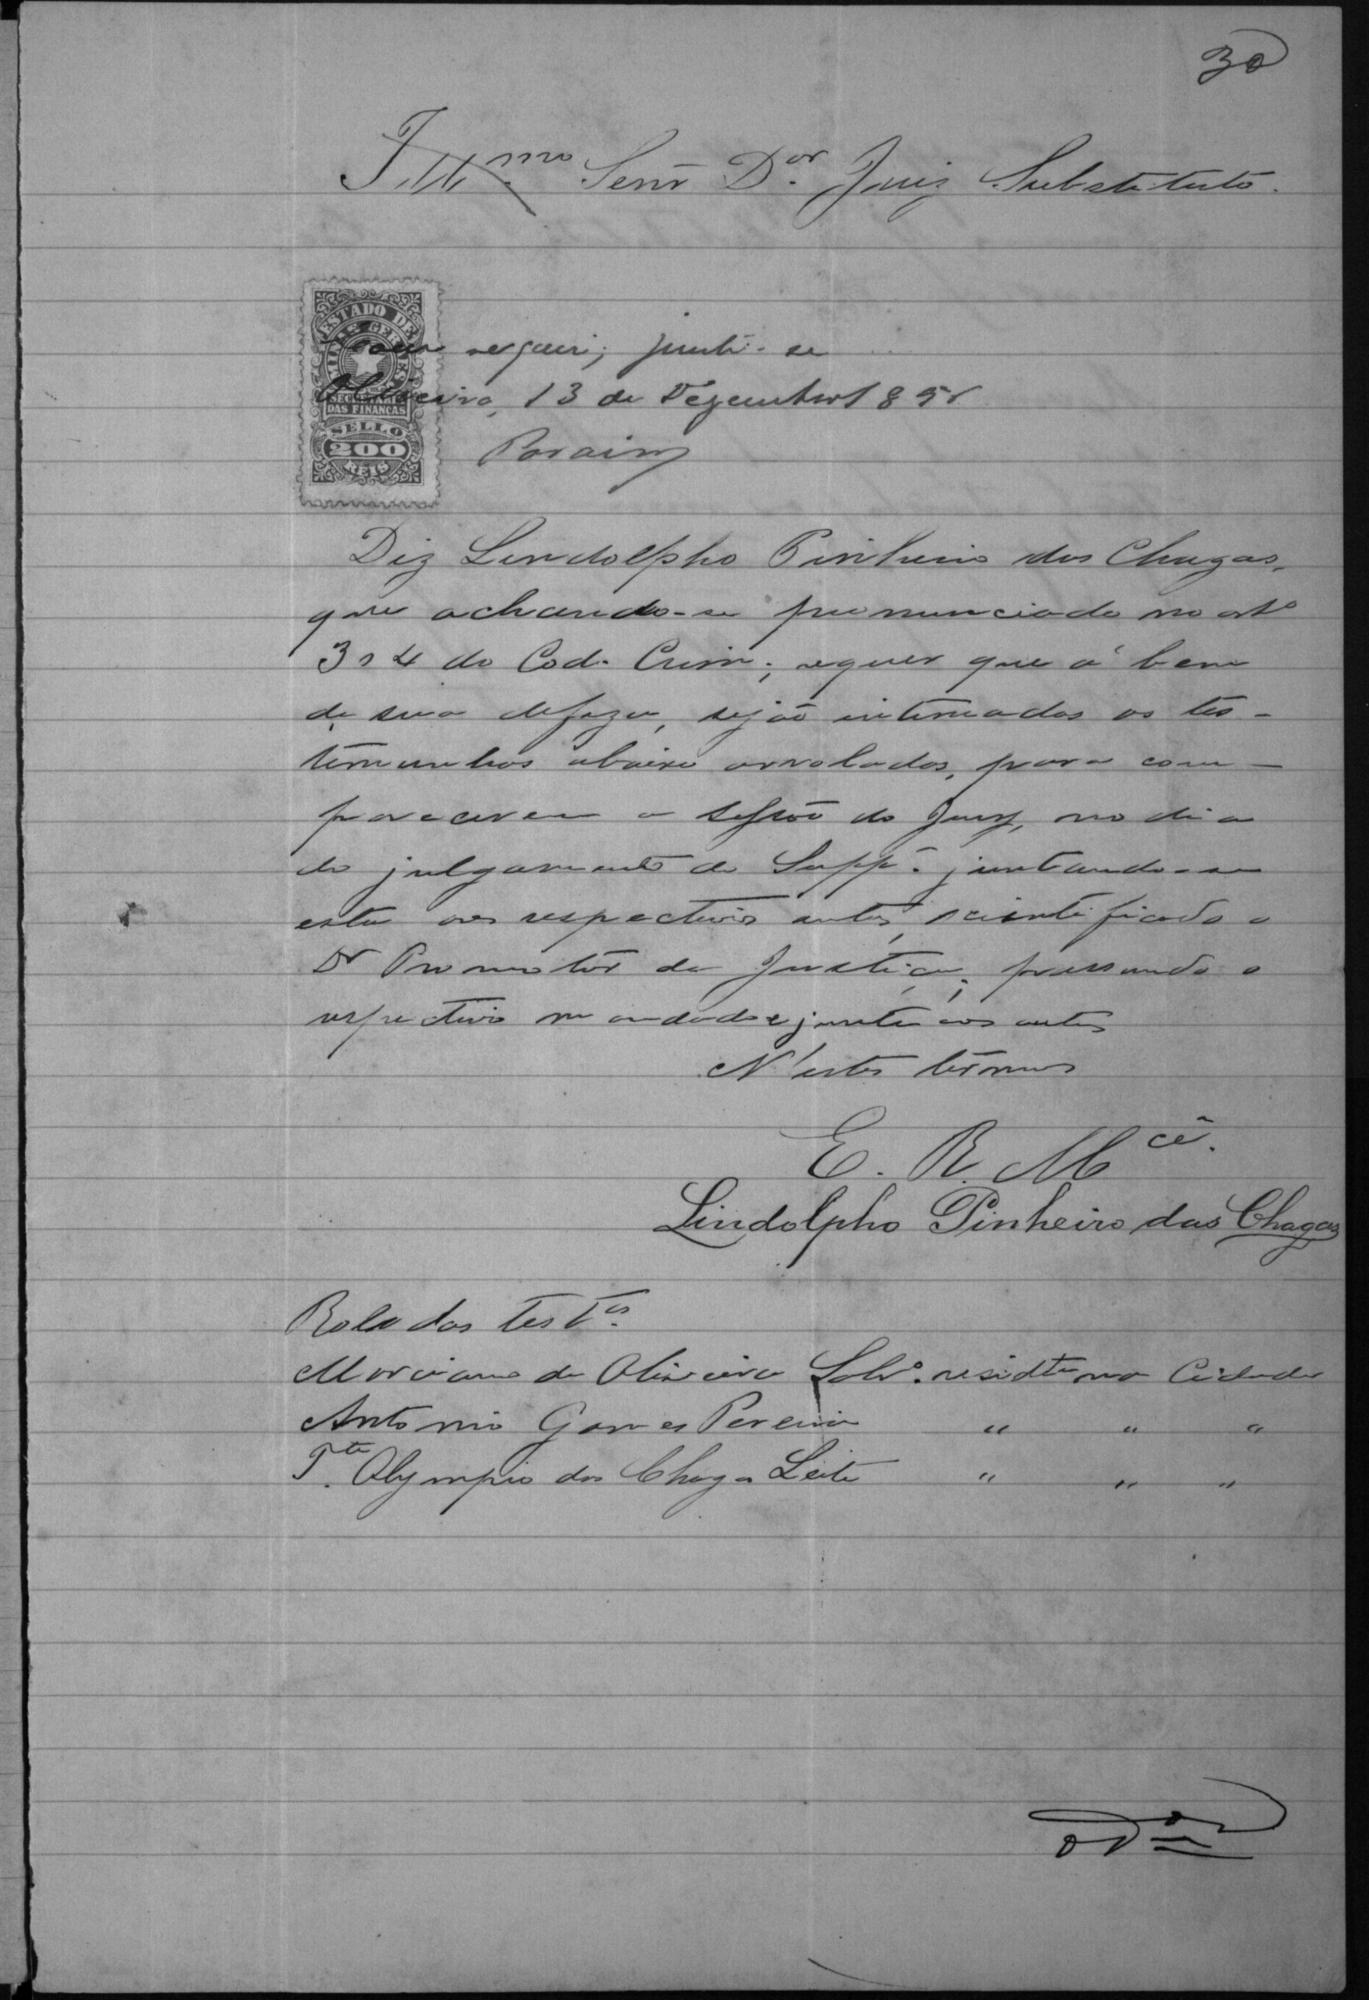 30
Illmo. Senr. Dor. Juiz Substituto.
ESTADO DE
MINAS GERAES
SECRETARIA
DAS FINANÇAS
SELLO
200
REIS
Como requer; junte-se
Oliveira, 13 de Dezembro 189
Diz Lindolpho Pinheiro das Chagas,
que achando-se pronunciado no arto
304 do Cod. Crim.; requer que á bem
de sua defeza, sejão intimados as tes-
temunhas abaixo arroladas, para com-
parecerem a sessão do Jury, no dia
do julgamento do Suppe. juntando-se
esta aos respectivos autos, scientificado o
Dr Promotor da Justiça; passando o
respectivo mandado e junto aos autos
N'estes termos
E. R. Mcê.
Lindolpho Pinheiro das Chagas
Rol das testas.
Marciano de Oliveira Salvo. residte na Cidade
Antonio Gomes Pereira " " "
Te. Olympio das Chagas Leite " " "